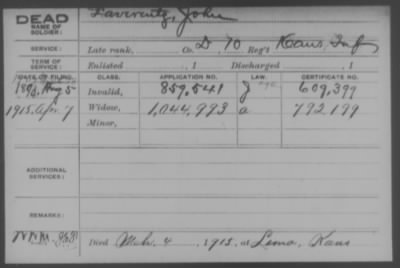 DEAD
NAME OF SOLDIER: Laverentz, John
SERVICE: Late rank, Co. D, 10 Reg't Kans. Inf.
TERM OF SERVICE: Enlisted , 1 Discharged , 1
DATE OF FILING. CLASS. APPLICATION NO. LAW. CERTIFICATE NO.
Aug 5 Invalid, 859,541 609,399
1915. Apr 7 Widow, 1,044,993 a 792,199
Minor,
ADDITIONAL SERVICES:
REMARKS:
Died Mch. 4, 1915, at Kans